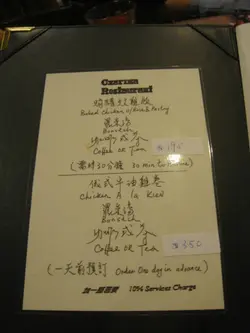 Czarina
Restaurant
焗釀雞飯
Baked Chicken w/ Rice & Pastry
羅宋湯
Borscht
咖啡或茶
Coffee or Tea
$195
(需時30分鐘 30 min to prepare)
俄式牛油雞卷
Chicken A' la Kiev
羅宋湯
Borscht
咖啡或茶
Coffee or Tea
$350
(一天前預訂 Order One day in advance)
加一服務費 10% Services Charge